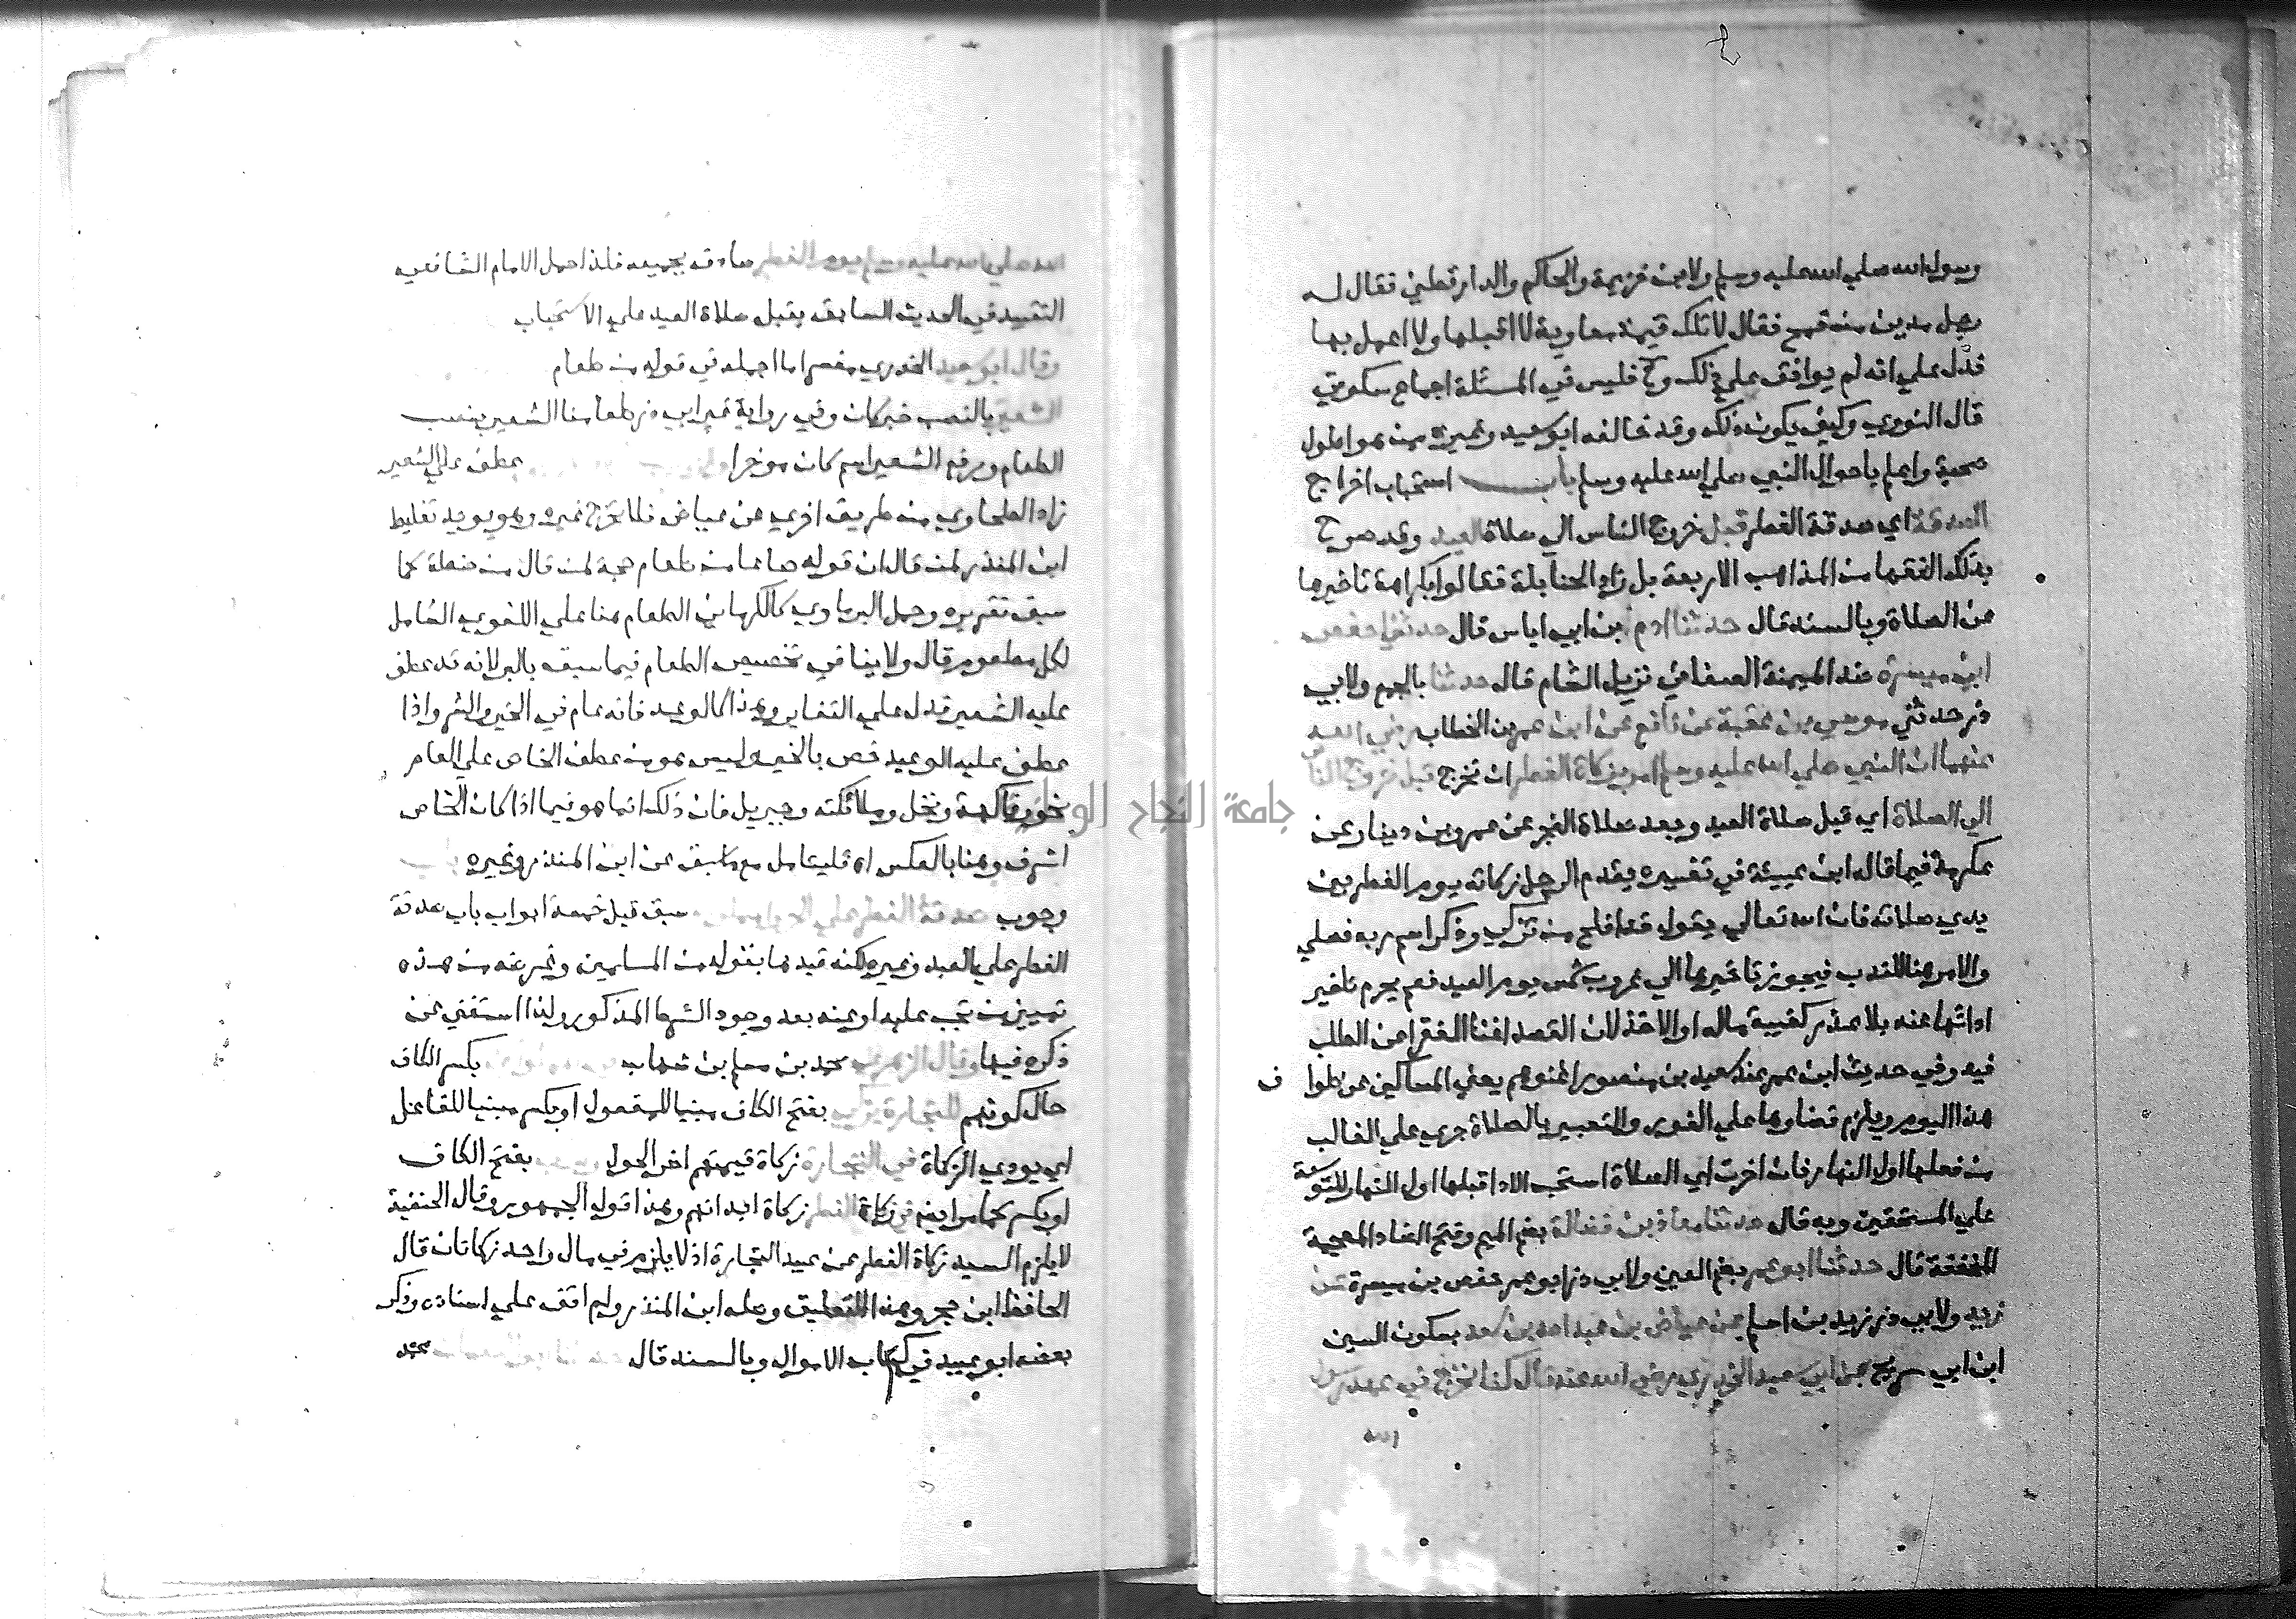 رسول الله صلي الله عليه وسلم ولابن خزيمة والحاكم والدارقطني فقال له
رجل مدين من قمح فقال لا تلك قيمة معاوية لا اقبلها ولا اعمل بها
فدل علي انه لم يوافق علي ذلك وح فليس في المسئلة اجماع سكوتي
قال النووي وكيف يكون ذلك وقد خالفه ابو سعيد وغيره ممن هو اطول
صحبة واعلم باحوال النبي صلي الله عليه وسلم باب استحباب اخراج
الصدقة اي صدقة الفطر قبل خروج الناس الي صلاة العيد وقد صرح
بذلك الفقها من المذاهب الاربعة بل زاد الحنابلة فقالوا بكراهة تاخيرها
عن الصلاة وبالسند قال حدثنا ادم بن ابي اياس قال حدثني حفص
ابن ميسرة ضد الميمنة الصنعاني نزيل الشام قال حدثنا بالجمع ولابي
ذر حدثني موسي بن عقبة عن نافع عن ابن عمر بن الخطاب رضي الله
عنهما ان النبي صلي الله عليه وسلم امر بزكاة الفطر ان تخرج قبل خروج الناس
الي الصلاة اي قبل صلاة العيد وبعد صلاة الفجر عن عمرو بن دينار عن
عكرمة فيما قال ابن عيينة في تفسيره يقدم الرجل زكاته يوم الفطر بين
يدي صلاته فان الله تعالي يقول قد افلح من تزكي وذكر اسم ربه فصلي
والامر هنا للندب فيجوز تاخيرها الي غروب شمس يوم العيد نعم يحرم تاخير
ادائها عنه بلا عذر كغيبة ماله او الاخذ لان القصد اغنا الفقرا عن الطلب
فيه وفي حديث ابن عمر عند سعيد بن منصور اغنوهم يعني المساكين عن طوا ف
هذا اليوم ويلزم قضاوها علي الفور والتعبير بالصلاة جري علي الغالب
من فعلها اول النهار فان اخرت اي الصلاة استحب الادا قبلها اول النهار للتوسعة
علي المستحقين وبه قال حدثنا معاذ بن فضالة بضم الميم وفتح الضاد المعجمة
المخففة قال حدثنا ابو عمر بضم العين ولابي ذر ابو عمر حفص بن ميسرة عن
زيد ولابي ذر زيد بن اسلم عن عياض بن عبد الله بن سعد بسكون العين
ابن ابي سرح عن ابي سعيد الخدري رضي الله عنه قال كنا نخرج في عهد رسول
الله
الله صلي الله عليه وسلم يوم الفطر صادق بجميعه فلذا حمل الامام الشافعي
التقييد في الحديث السابق بقبل صلاة العيد علي الاستحباب
وقال ابو سعيد الخدري مفسرا ما اجمله في قوله من طعام
الشعير بالنصب خبر كان وفي رواية غير ابي ذر طعامنا الشعير بنصب
الطعام ورفع الشعير اسم كان موخرا عطف علي الشعير
زاد الطحاوي من طريق اخري عن عياض فلا نخرج غيره وهو يويد تغليط
ابن المنذر لمن قال ان قوله صاعا من طعام حجة لمن قال من حنطة كما
سبق تقريره وحمل البرماوي كالكرماني الطعام هنا علي اللغوي الشامل
لكل مطعوم قال ولا ينافي تخصيص الطعام فيما سبق بالبر لانه قد عطف
عليه الشعير فدل علي التغاير وهذا كالوعد فانه عام في الخير والشر واذا
عطف عليه الوعيد خص بالخير وليس هو من عطف الخاص علي العام
نحو فاكهة ونخل وملائكته وجبريل فان ذلك انما هو فيما اذا كان الخاص
اشرف وهنا بالعكس اه فليتامل مع ما سبق عن ابن المنذر وغيره باب
وجوب صدقة الفطر علي سبق قبل خمسة ابواب باب صدقة
الفطر علي العبد وغيره لكنه قيدها بقوله من المسلمين وغرضه من هذه
تمييز من تجب عليه او عنه بعد وجود الشرط المذكور ولذا استغني عن
ذكره فيها وقال الزهري محمد بن مسلم بن شهاب بكسر الكاف
حال كونهم للتجارة يزكي بفتح الكاف مبنيا للمفعول او بكسر مبنيا للفاعل
اي يودي الزكاة في التجارة زكاة قيمتهم اخر الحول بفتح الكاف
او بكسر كما مر ايضا في زكاة الفطر زكاة ابدانهم وهذا قول الجمهور وقال الحنفية
لا يلزم السيد زكاة الفطر عن عبيد التجارة اذ لا يلزم في مال واحد زكاتان قال
الحافظ ابن حجر وهذا التعليق وصله ابن المنذر ولم اقف علي اسناده وذكر
بعضه ابو عبيد في كتاب الاموال وبالسند قال
جامعة النجاح الو